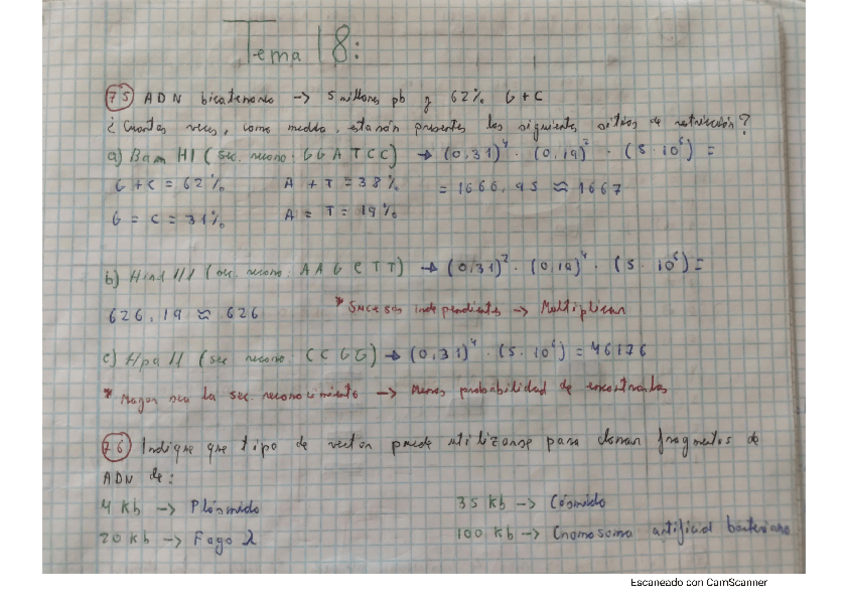 Tema 18:
75 ADN bicatenario -> 5 millones pb y 62% G+C
¿Cuántas veces, como media, estarán presentes los siguientes sitios de restricción?
a) Bam HI (sec. recono: GGATCC) -> (0,31)⁴ · (0,19)² · (5·10⁶) =
G + C = 62% A + T = 38% = 1666,95 ≈ 1667
G = C = 31% A = T = 19%
b) Hind III (sec. recono: AAGCTT) -> (0,31)² · (0,19)⁴ · (5·10⁶) =
626,19 ≈ 626 * Sucesos independientes -> Multiplican
c) Hpa II (sec recono: CCGG) -> (0,31)⁴ · (5·10⁶) = 46176
* Mayor sea la sec. reconocimiento -> Menos probabilidad de encontrarlas
76 Indique que tipo de vector puede utilizarse para clonar fragmentos de
ADN de:
4 Kb -> Plásmido 35 Kb -> Cósmido
20 Kb -> Fago λ 100 Kb -> Cromosoma artificial bacteriano
Escaneado con CamScanner